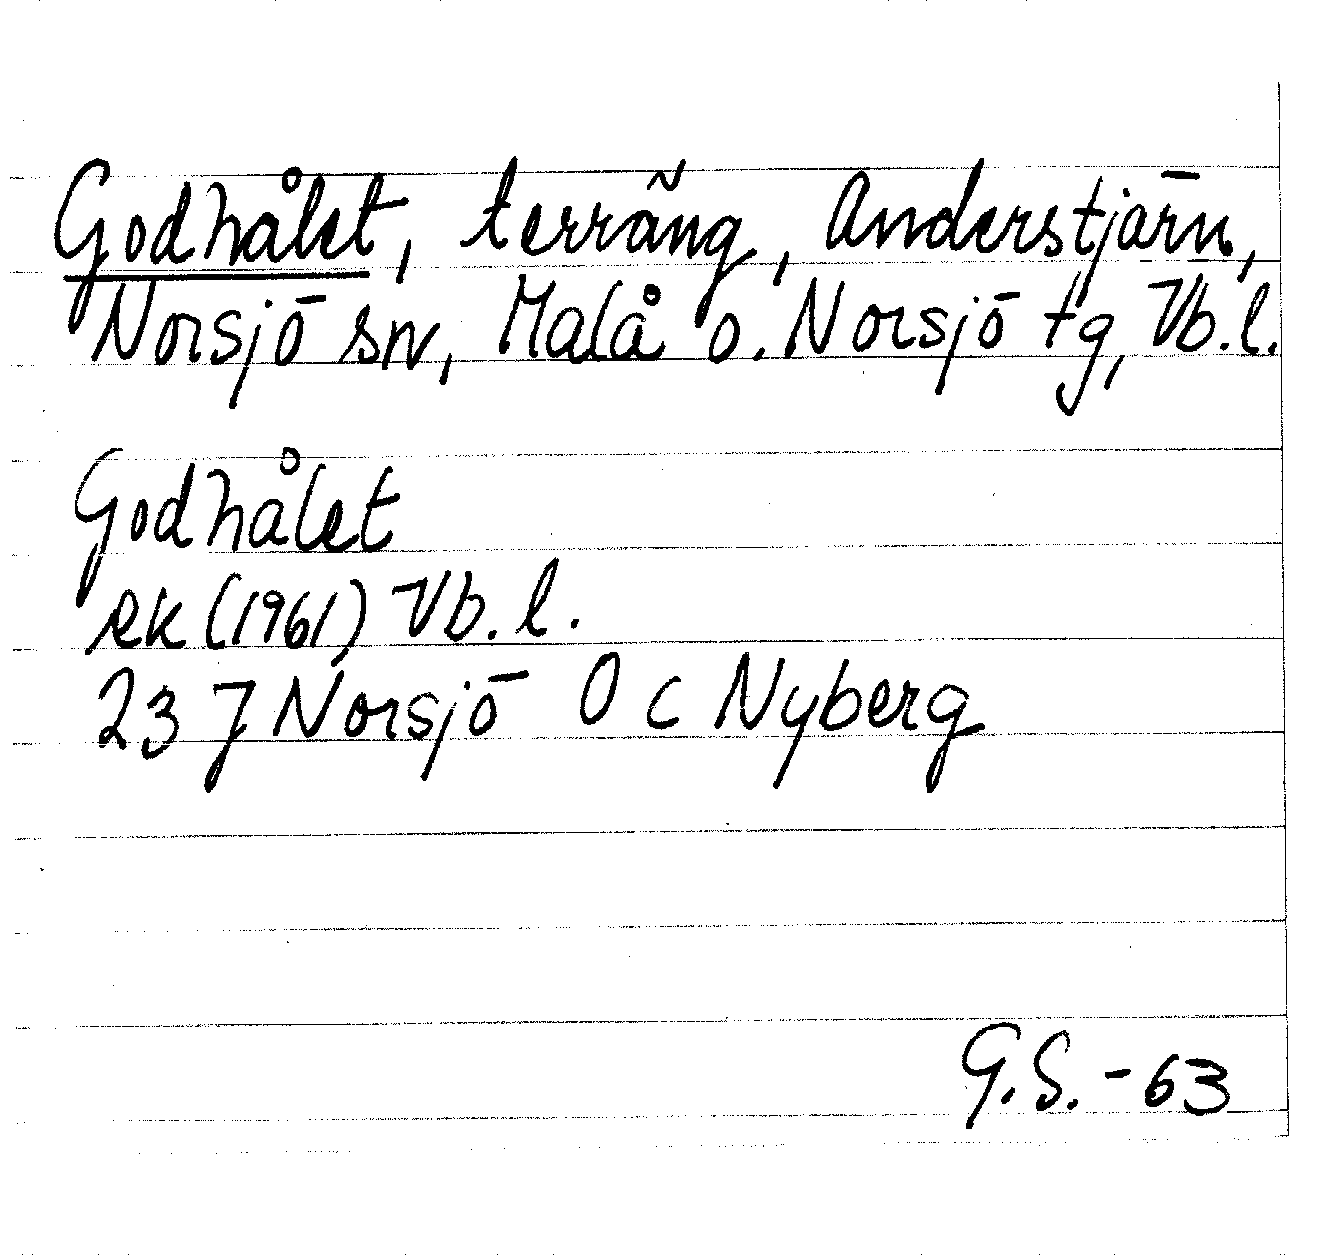 Godhålet, terräng, Anderstjärn,
Norsjö sn, Malå o. Norsjö tg, Vb. l.
Godhålet
ek (1961) Vb. l.
23 J Norsjö 0 c Nyberg
G.S. - 63